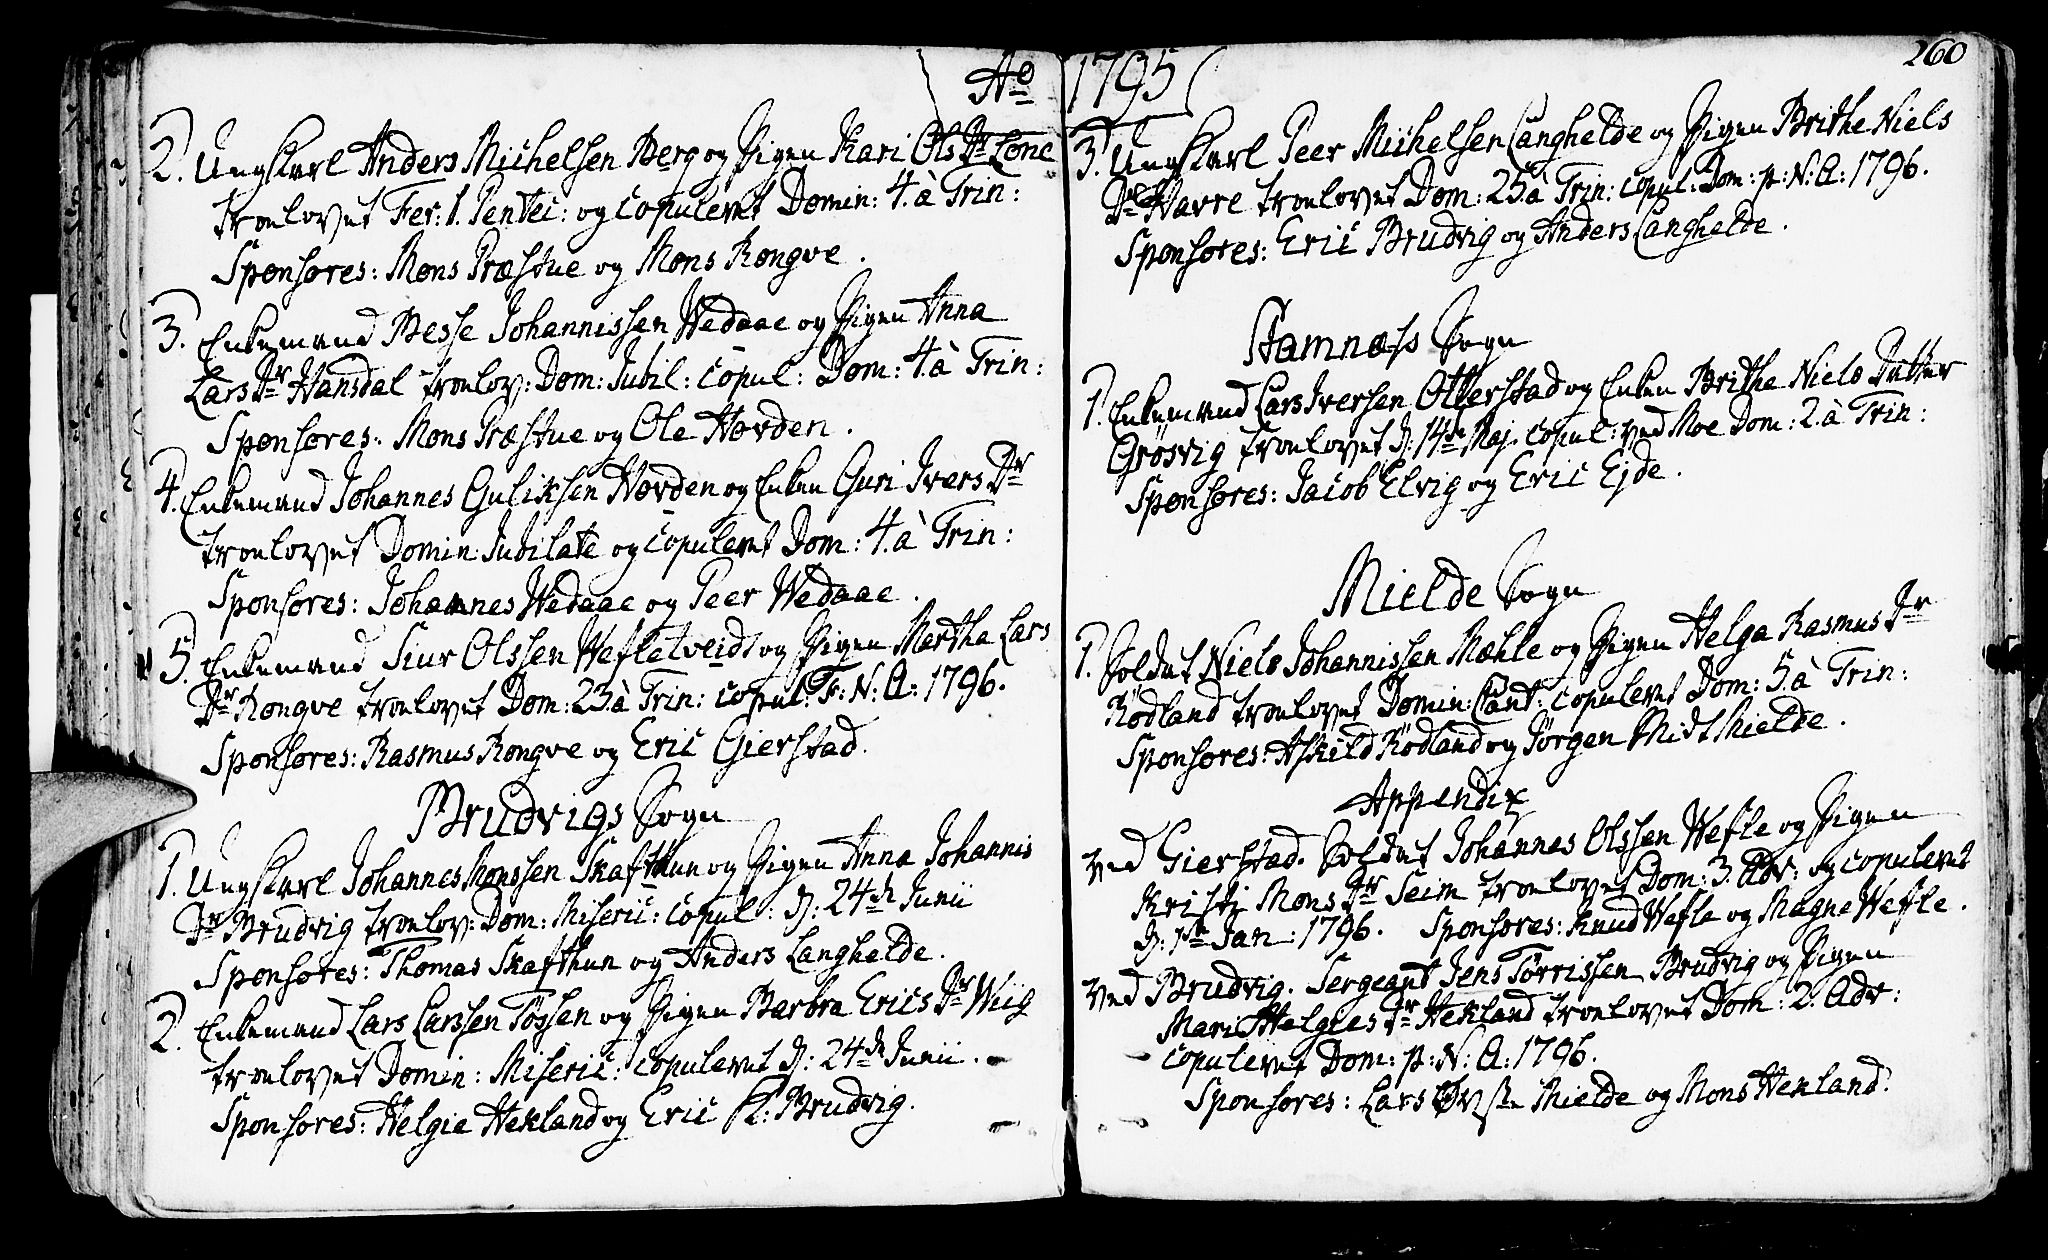 Aº 1795
2. Ungkarl Anders Michelsen Berg og Pigen Kari Ols Dr Lone
troelovet Fer: 1. Pentec: og copuleret Domin: 4. à Trin:
Sponsores: Mons Præstue og Mons Rongve.
3. Enkemand Besse Johannissen Wedaae og Pigen Anna
Lars Dr Hansdal troelov: Dom: Jubil: copul: Dom: 4. à Trin:
Sponsores: Mons Præstue og Ole Hovden.
4. Enkemand Johannes Guliksen Hovden og Enken Guri Ivers Dr
troelovet Domin: Jubilate og copuleret Dom: 4. à Trin:
Sponsores: Johannes Wedaae og Peer Wedaae.
5. Enkemand Siur Olssen Wefletveidt og Pigen Martha Lars
Dr Rongve troelovet Dom: 23. à Trin: copul: F: N: A: 1796.
Sponsores: Rasmus Rongve og Eric Gierstad.
Brudvigs Sogn
1. Ungkarl Johannes Monssen Skafthun og Pigen Anna Johannis
Dr Brudvig troelov: Dom: Miseric: copul: D: 24de Junii
Sponsores: Thomas Skafthun og Anders Langhelde.
2. Enkemand Lars Larssen Tøssen og Pigen Barbra Erics Dr Wiig
troelovet Domin: Miseric: copuleret D: 24de Junii.
Sponsores: Helgie Hekland og Eric Brudvig.
260
3. Ungkarl Peer Michelsen Langhelde og Pigen Brithe Niels
Dr Havre troelovet Dom: 25. à Trin: copul: Dom: p: N: A: 1796.
Sponsores: Eric Brudvig og Anders Langhelde.
Stamnæss Sogn
1. Enkemand Lars Iversen Otterstad og Enken Brithe Niels Datter
Grøsvig troelovet D: 14de Maj. copul: ved Moe Dom: 2. à Trin:
Sponsores: Jacob Elvig og Eric Ejde.
Mielde Sogn
1. Soldat Niels Johannissen Mæhle og Pigen Helga Rasmus Dr
Rödland troelovet Domin: Cant: copuleret Dom: 5. à Trin:
Sponsores: Askild Rödland og Jørgen Midt Mielde.
Appendix
ved Gierstad. Soldat Johannes Olssen Wefle og Pigen
Kristj Mons Dr Seim troelovet Dom: 3. Adv: og copuleret
D: 1te Jan: 1796. Sponsores: Knud Wefle og Magne Wefle.
ved Brudvig. Sergeant Jens Tørrissen Brudvig og Pigen
Mari Helgies Dr Hekland troelovet Dom: 2. Adv:
copuleret Dom: p: N: A: 1796.
Sponsores: Lars Øvste Mielde og Mons Hekland.